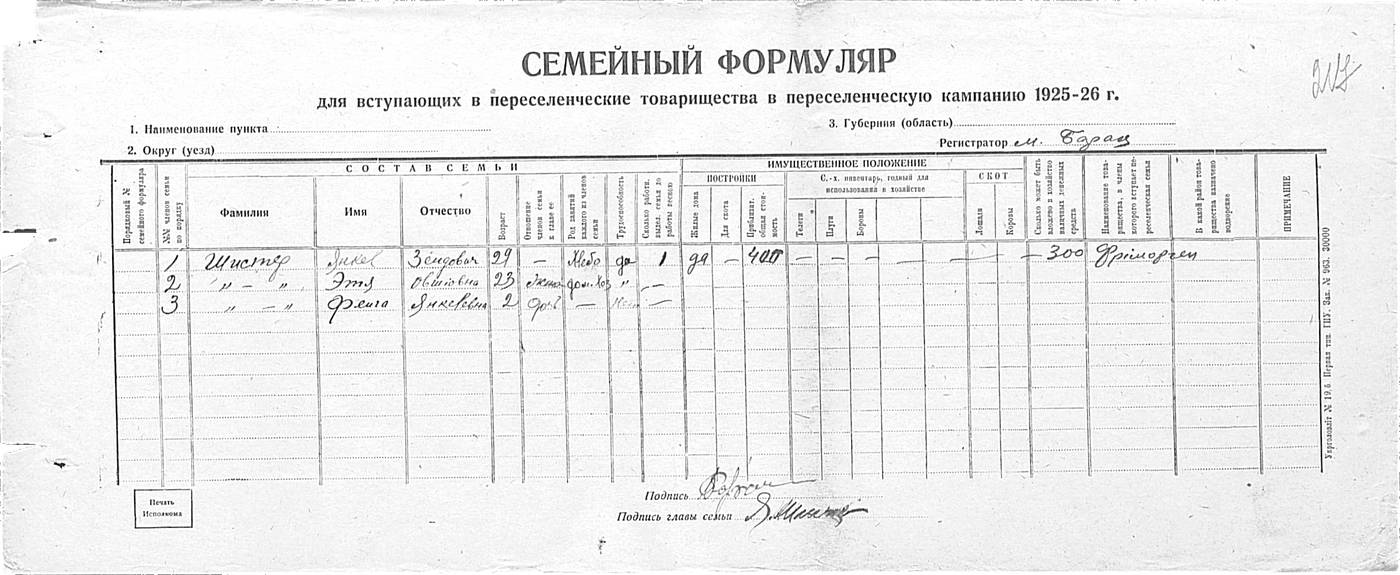 217
СЕМЕЙНЫЙ ФОРМУЛЯР
для вступающих в переселенческие товарищества в переселенческую кампанию 1925-26 г.
1. Наименование пункта
3. Губерния (область)
2. Округ (уезд)
Регистратор м. Барац
СОСТАВ СЕМЬИ
ИМУЩЕСТВЕННОЕ ПОЛОЖЕНИЕ
ПОСТРОЙКИ
С.-х. инвентарь, годный для использования в хозяйстве
СКОТ
Порядковый № семейного формуляра
№№ членов семьи по порядку
Фамилия
Имя
Отчество
Возраст
Отношение членов семьи к главе ее
Род занятий каждого из членов семьи
Трудоспособность
Сколько работн. выдел. семья до работы весною
Жилые дома
Для скота
Приблизит. общая стоимость
Телеги
Плуги
Бороны
Лошади
Коровы
Сколько может быть введено в хозяйство наличных денежных средств
Наименование товарищества, в члены которого вступает переселенческая семья
В какой район товарищества назначено водворение
ПРИМЕЧАНИЕ
1 Шистер Янкев Зендович 29 — да 1 да — 400 — — — — — — 300 Фрïморген
2 „ — „ Этя Овшiовна 23 жена дом.хоз „ —
3 „ — „ Фейга Янкелевна 2 дочь — —
Печать Исполкома
Подпись
Подпись главы семьи
Укрголовліт № 19.6 Первая тип. ГПУ. Зак. № 963. 30000